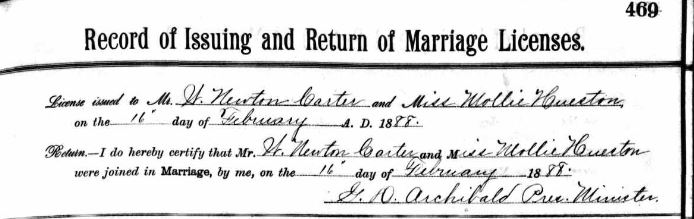 469
Record of Issuing and Return of Marriage Licenses.
License issued to Mr. W. Newton Carter and Miss Mollie Hueston,
on the 16" day of February A. D. 1888.
Return.—I do hereby certify that Mr. W. Newton Carter and Miss Mollie Hueston
were joined in Marriage, by me, on the 16" day of February 1888.
G. D. Archibald Pres. Minister.